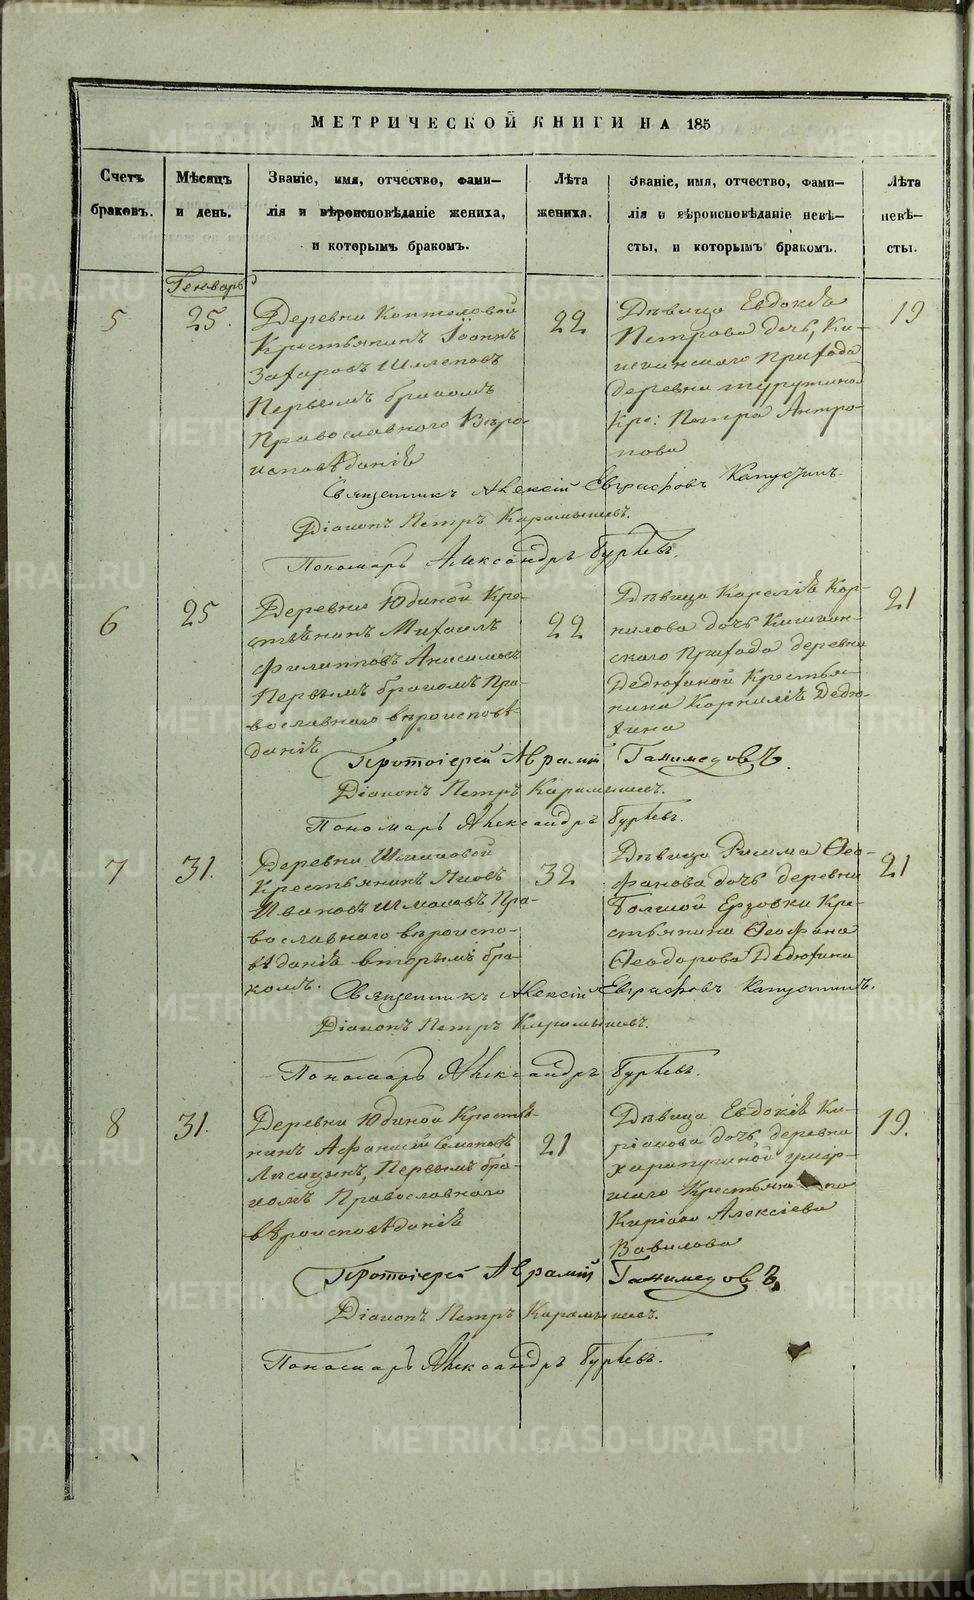 МЕТРИЧЕСКОЙ КНИГИ НА 185
Счетъ браковъ.
Мѣсяцъ и день.
Званіе, имя, отчество, фами-
лія и вѣроисповѣданіе жениха,
и которымъ бракомъ.
Лѣта жениха.
Званіе, имя, отчество, фами-
лія и вѣроисповѣданіе невѣ-
сты, и которымъ бракомъ.
Лѣта невѣ-
сты.
Генварь
5
25.
Деревни Коптяловой
Крестьянинъ Іоаннъ
Захаровъ Шляповъ
Первымъ бракомъ
Православнаго Вѣро-
исповѣданія
22
Дѣвица Евдокія
Петрова дочь, Ки-
шканскаго прихода
деревни
Кре: Петра Антро-
пова
19
Священникъ Алексій Евграфовъ Капустинъ.
Діаконъ Петръ Карамышевъ.
Пономарь Александръ Гурьевъ.
6
25
Деревни Юдиной Кре-
стьянинъ Михаилъ
Филипповъ Анисимовъ
Первымъ бракомъ Пра-
вославнаго вѣроисповѣ-
данія
22
Дѣвица Караллія Кор-
нилова дочь
скаго прихода деревни
Дедюхиной Крестья-
нина Корнилія Дедю-
хина
21
Протоіерей Аврамій Ганимедовъ.
Діаконъ Петръ Карамышевъ.
Пономарь Александръ Гурьевъ.
7
31.
Деревни
Крестьянинъ Яковъ
Ивановъ Шмаковъ Пра-
вославнаго вѣроиспо-
вѣданія вторымъ бра-
комъ.
32
Дѣвица Римма Ѳео-
фанова дочь деревни
Болшой Ерзовки Кре-
стьянина Ѳеофана
Ѳеодорова Дедюхина
21
Священникъ Алексій Евграфовъ Капустинъ.
Діаконъ Петръ Карамышевъ.
Пономарь Александръ Гурьевъ.
8
31.
Деревни Юдиной Крестья-
нинъ Афанасій Семеновъ
Лисицынъ, Первымъ бра-
комъ Православнаго
вѣроисповѣданія
21
Дѣвица Евдокія Ки-
ріакова дочь деревни
Харапугиной умер-
шаго Крестьянина
Киріака Алексіева
Вавилова
19.
Протоіерей Аврамій Ганимедовъ.
Діаконъ Петръ Карамышевъ.
Пономарь Александръ Гурьевъ.
METRIKI.GASO-URAL.RU